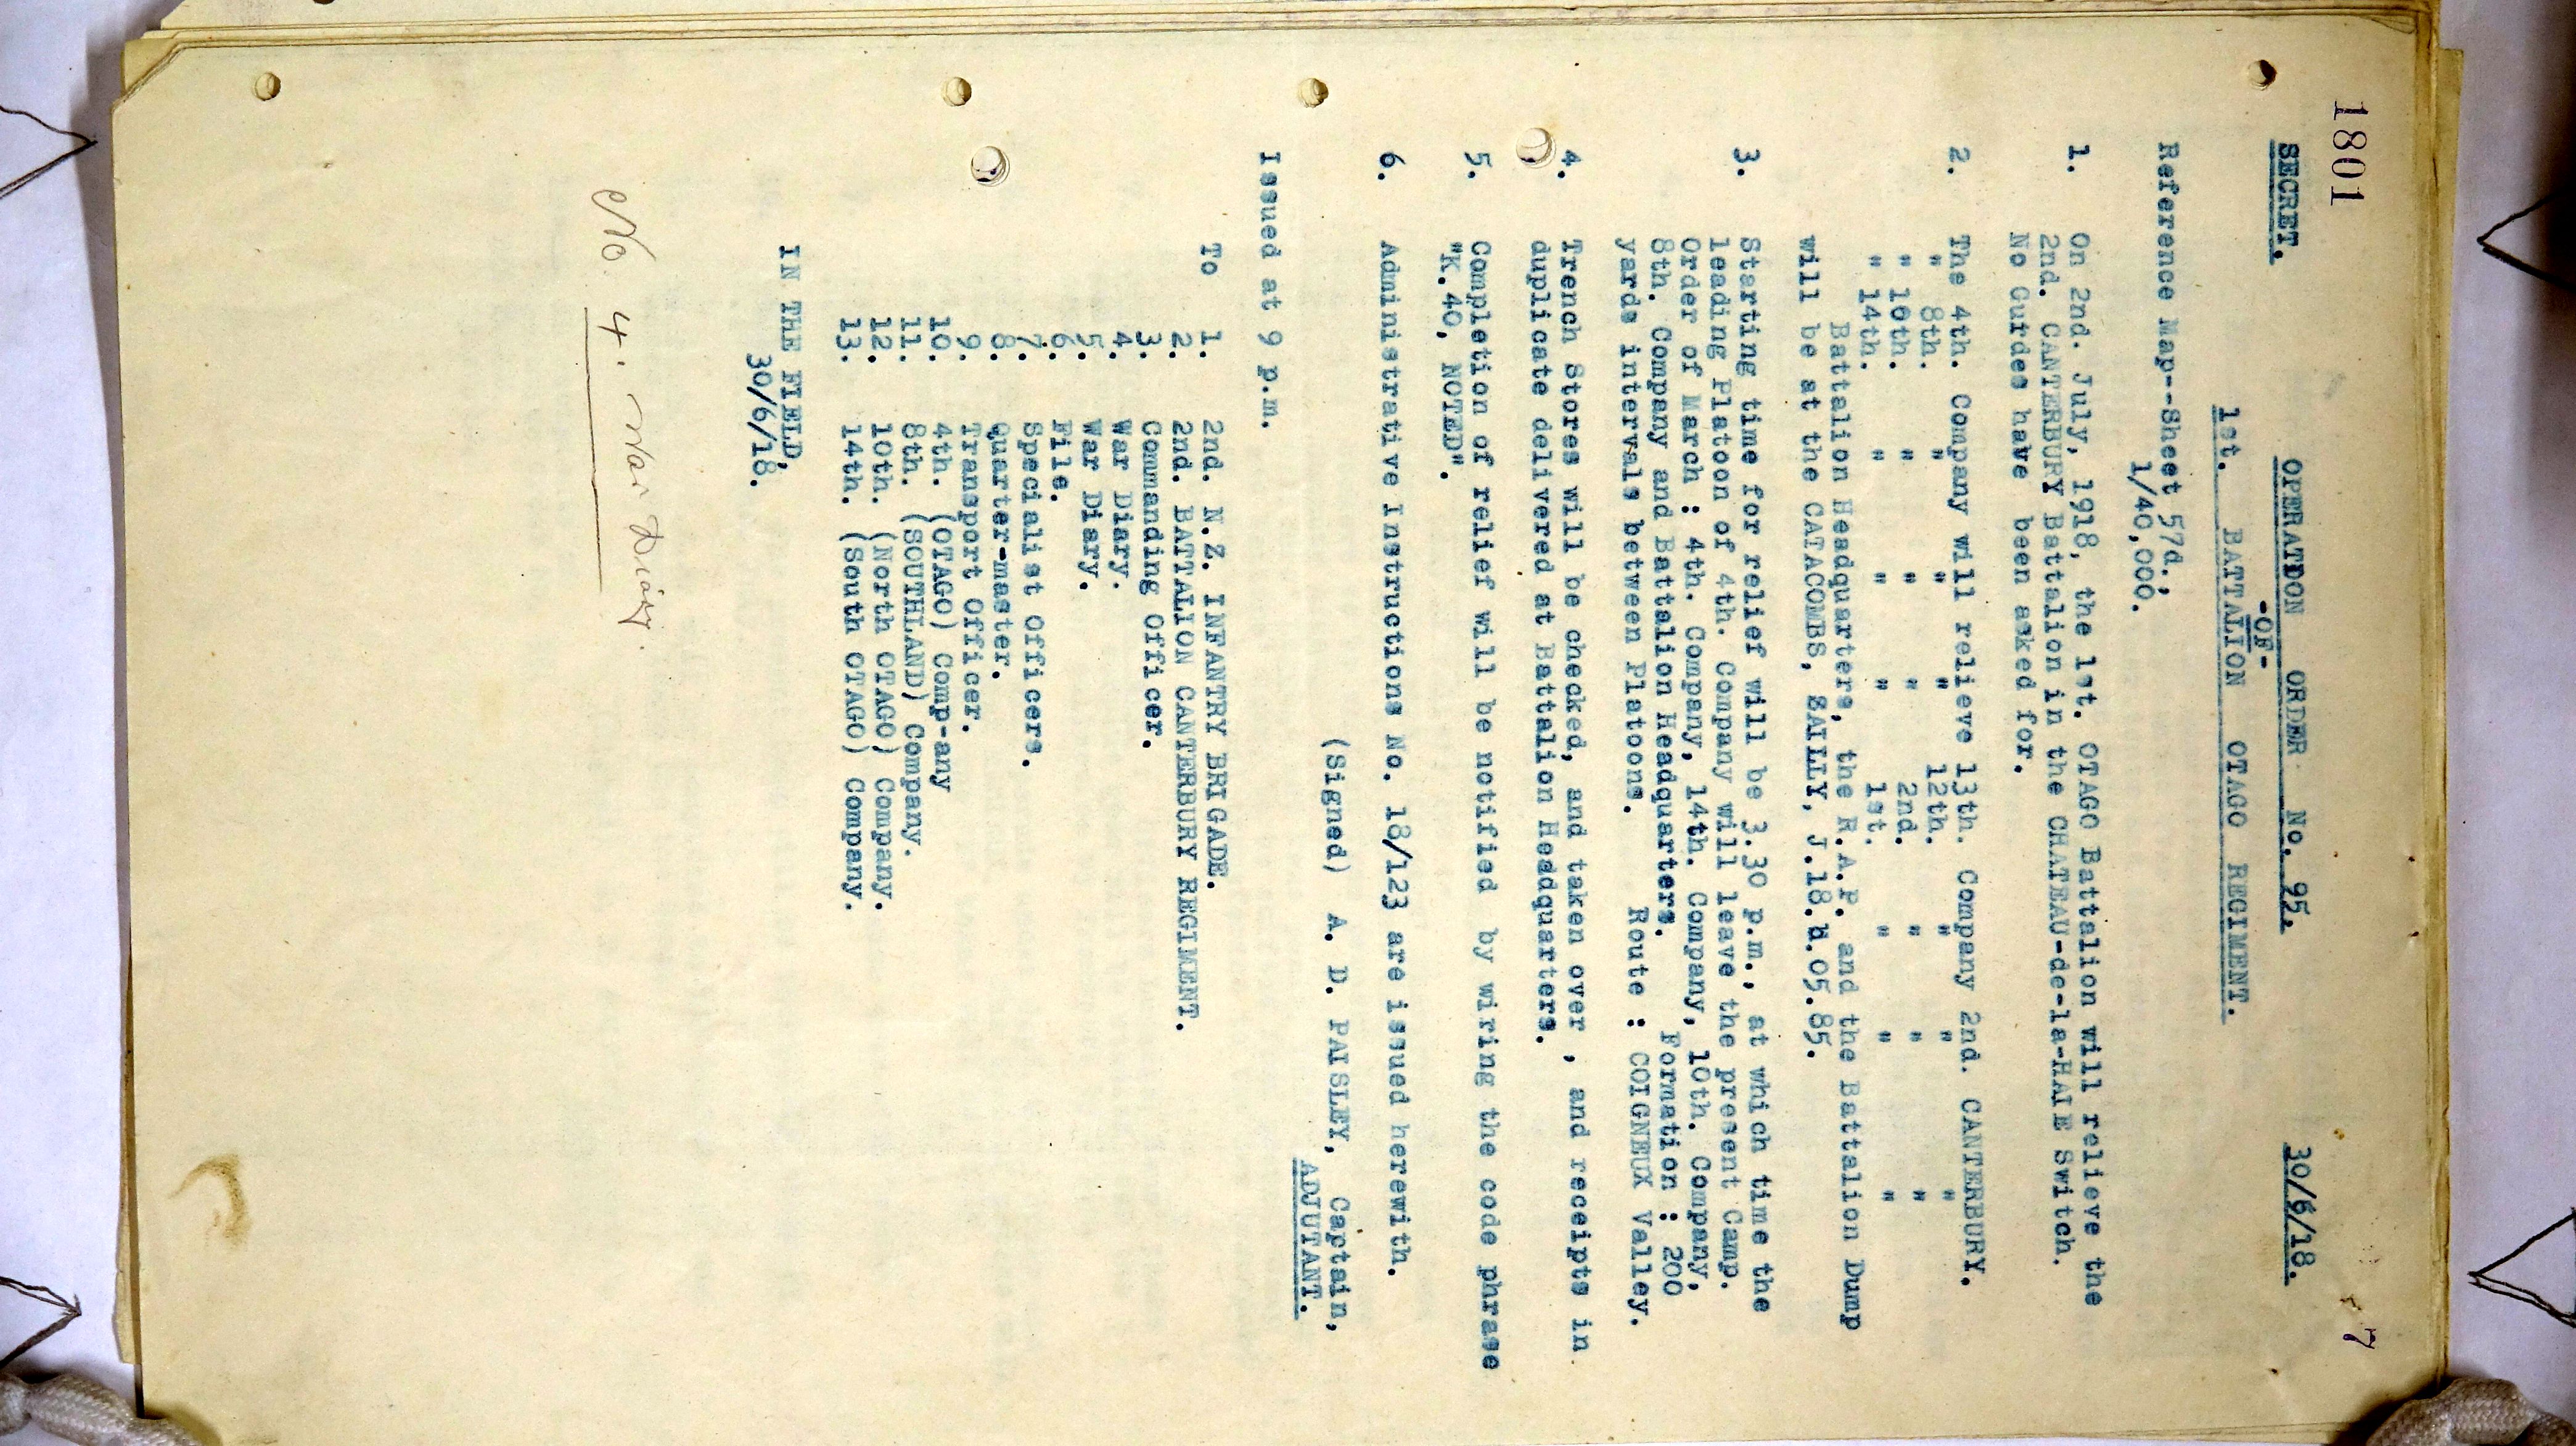 1801
7
SECRET. OPERATDON ORDER No. 95. 30/6/18.
-OF-
1st. BATTALION OTAGO REGIMENT.
Reference Map--Sheet 57d.,
1/40,000.
1. On 2nd. July, 1918, the 1st. OTAGO Battalion will relieve the
2nd. CANTERBURY Battalion in the CHATEAU-de-la-HAIE Switch.
No Gurdes have been asked for.
2. The 4th. Company will relieve 13th. Company 2nd. CANTERBURY.
" 8th. " " " 12th. " " "
" 10th. " " " 2nd. " " "
" 14th. " " " 1st. " " "
Battalion Headquarters, the R.A.P. and the Battalion Dump
will be at the CATACOMBS, SAILLY, J.18.d.05.85.
3. Starting time for relief will be 3.30 p.m., at which time the
leading Platoon of 4th. Company will leave the present Camp.
Order of March : 4th. Company, 14th. Company, 10th. Company,
8th. Company and Battalion Headquarters. Formation : 200
yards intervals between Platoons. Route : COIGNEUX Valley.
4. Trench Stores will be checked, and taken over , and receipts in
duplicate delivered at Battalion Headquarters.
5. Completion of relief will be notified by wiring the code phrase
"K.40, NOTED".
6. Administrative Instructions No. 18/123 are issued herewith.
(Signed) A. D. PAISLEY, Captain,
ADJUTANT.
Issued at 9 p.m.
To 1. 2nd. N.Z. INFANTRY BRIGADE.
2. 2nd. BATTALION CANTERBURY REGIMENT.
3. Commanding Officer.
4. War Diary.
5. War Diary.
6. File.
7. Specialist Officers.
8. Quarter-master.
9. Transport Officer.
10. 4th. (OTAGO) Comp-any
11. 8th. (SOUTHLAND) Company.
12. 10th. (North OTAGO) Company.
13. 14th. (South OTAGO) Company.
IN THE FIELD,
30/6/18.
No. 4. War Diary.